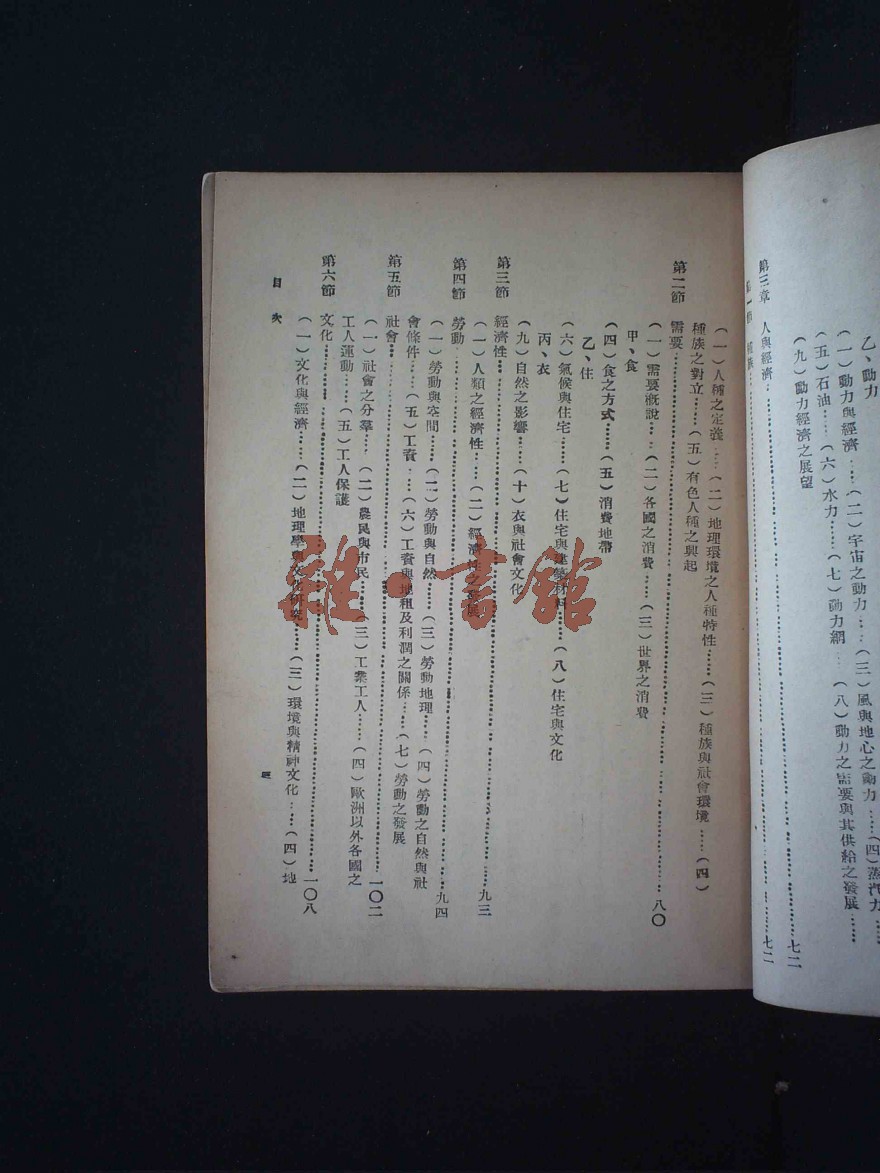 乙、動力
(一)動力與經濟……(二)宇宙之動力……(三)風與地心之動力……(四)蒸汽力……
(五)石油……(六)水力……(七)動力網……(八)動力之需要與其供給之發展……
(九)動力經濟之展望
第三章 人與經濟……七二
第一節 種族……七二
(一)人種之定義……(二)地理環境之人種特性……(三)種族與社會環境……(四)
種族之對立……(五)有色人種之興起
第二節 需要……八〇
(一)需要概說……(二)各國之消費……(三)世界之消費
甲、食
(四)食之方式……(五)消費地帶
乙、住
(六)氣候與住宅……(七)住宅與建築材料……(八)住宅與文化
丙、衣
(九)自然之影響……(十)衣與社會文化
第三節 經濟性……九三
(一)人類之經濟性……(二)經濟性之發展
第四節 勞動……九四
(一)勞動與空間……(二)勞動與自然……(三)勞動地理……(四)勞動之自然與社
會條件……(五)工資……(六)工資與地租及利潤之關係……(七)勞動之發展
第五節 社會……一〇二
(一)社會之分羣……(二)農民與市民……(三)工業工人……(四)歐洲以外各國之
工人運動……(五)工人保護
第六節 文化……一〇八
(一)文化與經濟……(二)地理學與文化研究……(三)環境與精神文化……(四)地
目次
雜·書館